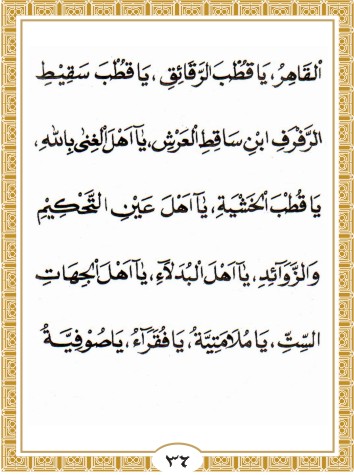 الْقَاهِرُ، يَا قُطْبَ الرَّقَائِقِ، يَا قُطْبَ سَقِيْطِ
الرَّفْرَفِ ابْنِ سَاقِطِ الْعَرْشِ، يَآ اَهْلَ الْغِنٰى بِاللهِ،
يَا قُطْبَ الْخَشْيَةِ، يَآ اَهْلَ عَيْنِ التَّحْكِيْمِ
وَالزَّوَآئِدِ، يَآ اَهْلَ الْبُدَلَآءِ، يَآ اَهْلَ الْجِهَاتِ
السِّتِّ، يَا مُلَامَتِيَّةُ، يَا فُقَرَآءُ، يَا صُوْفِيَّةُ
٣٤